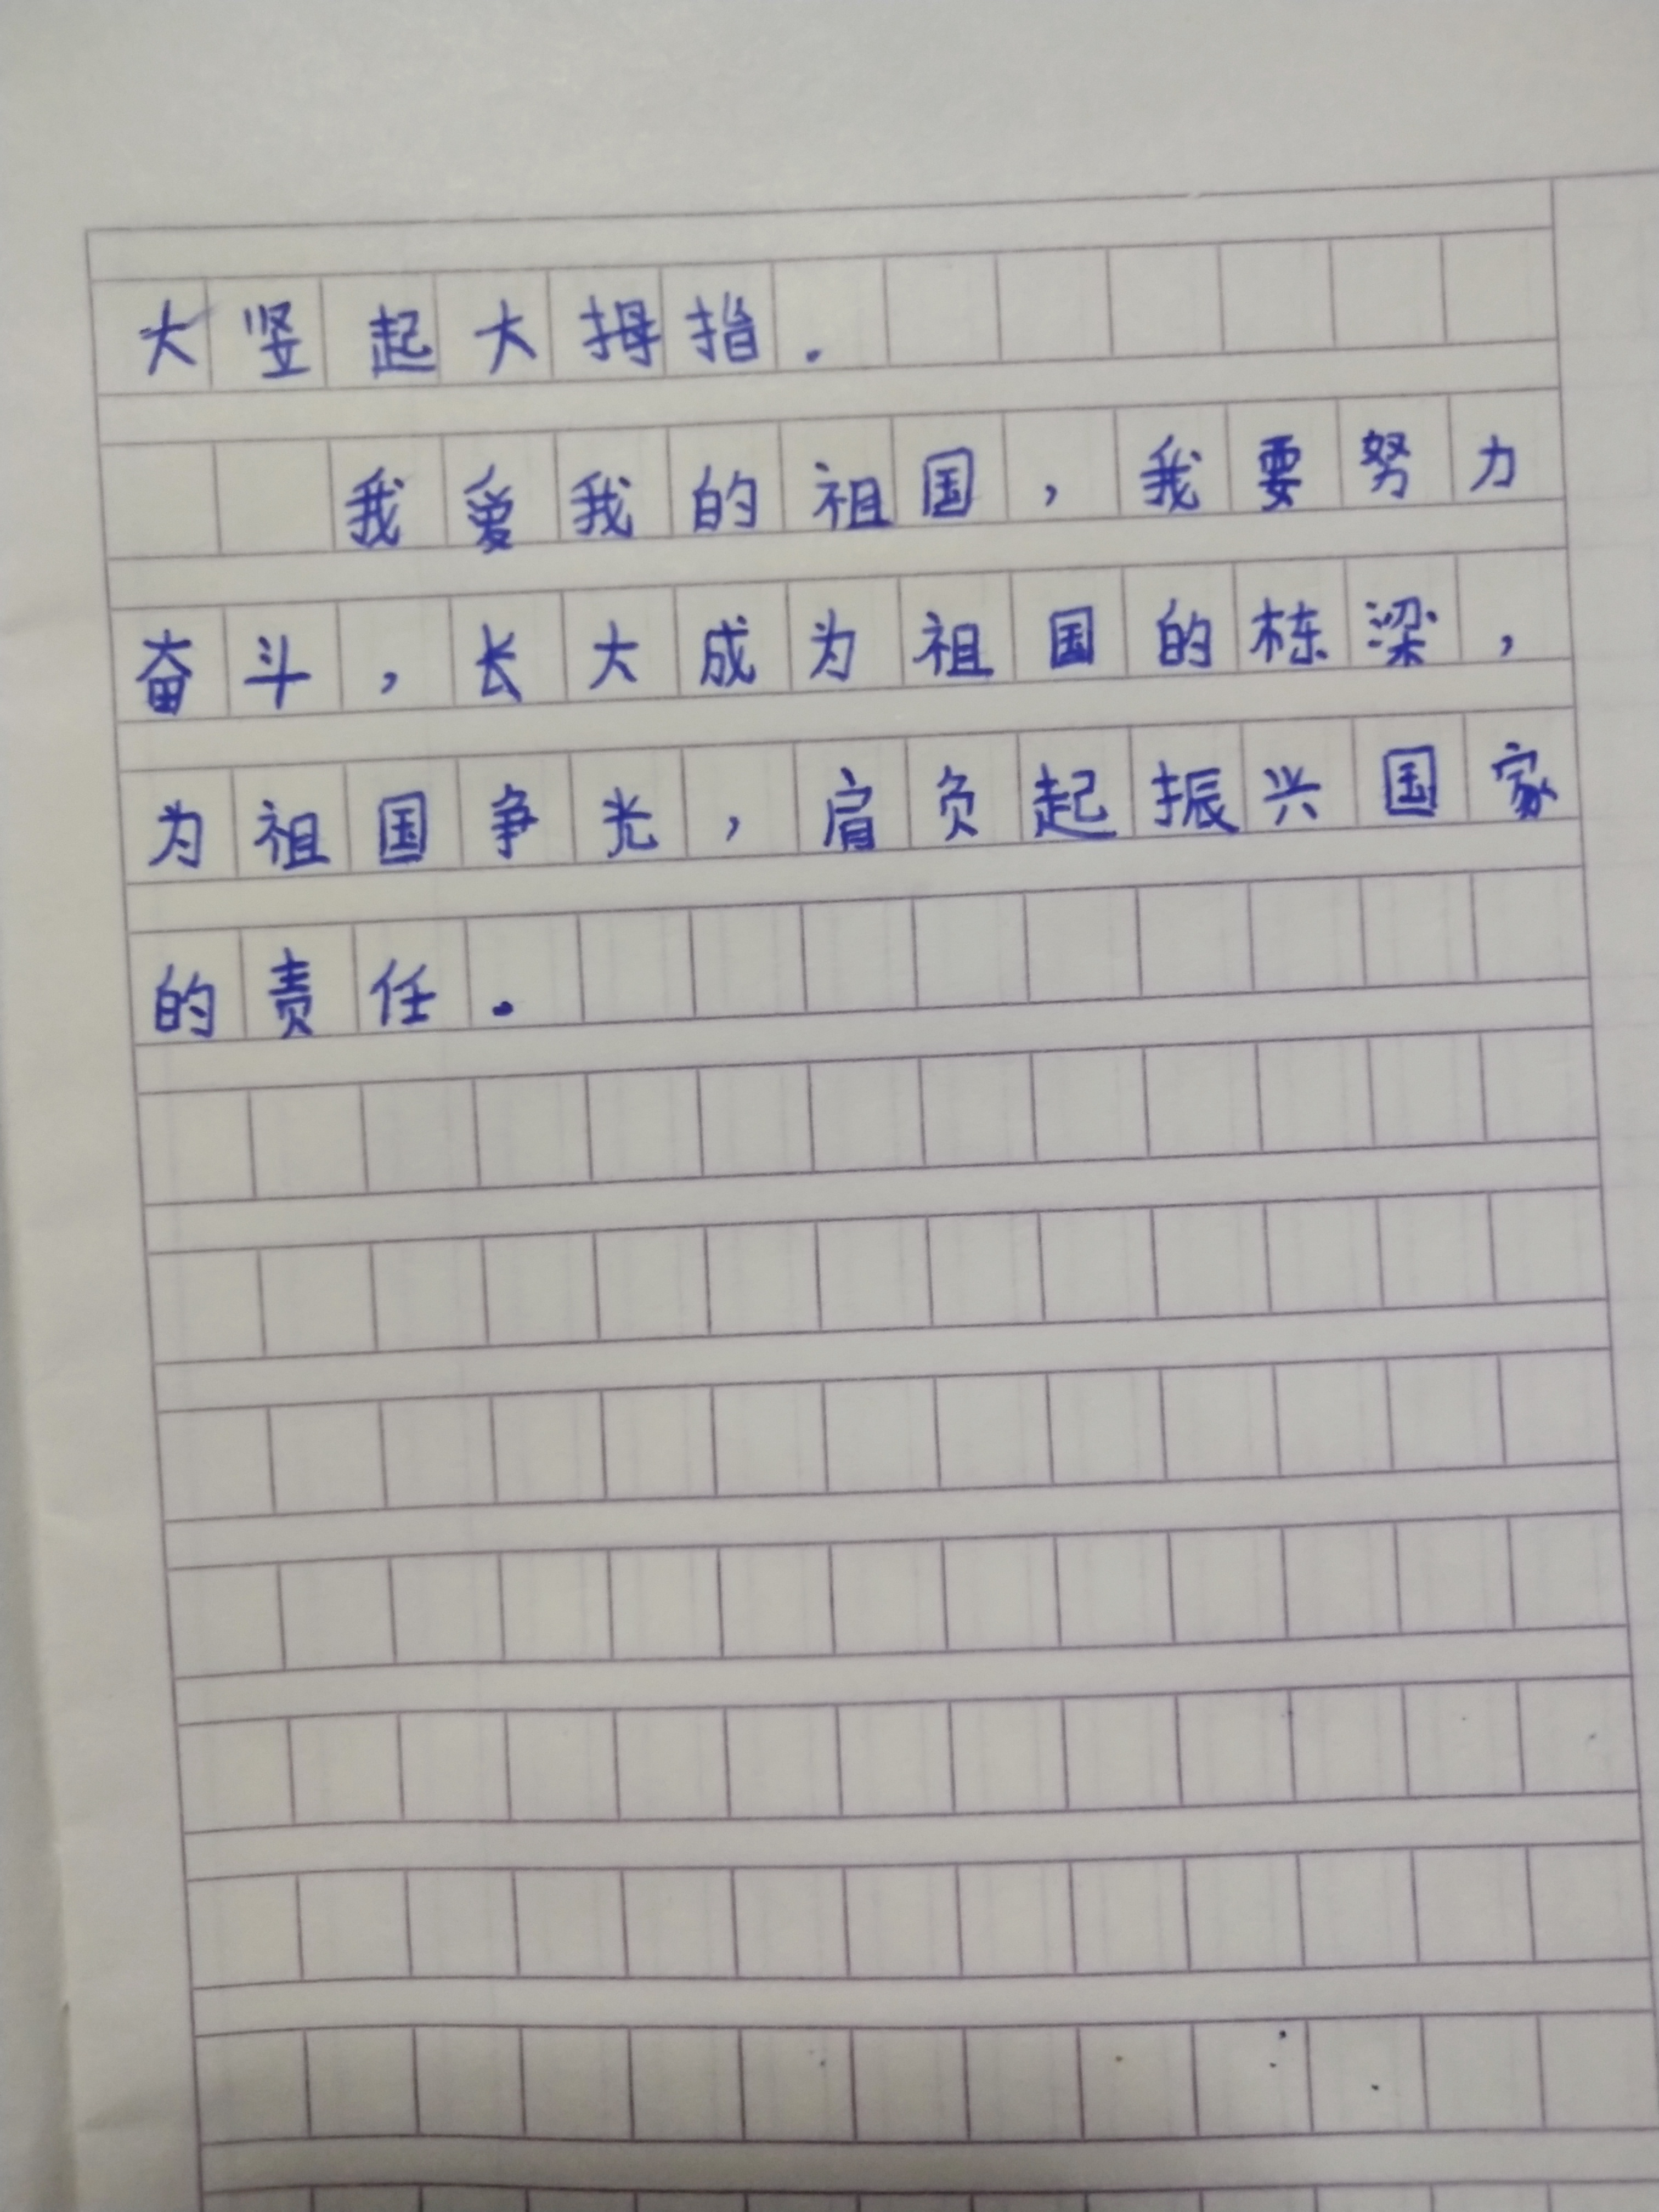 大竖起大拇指.
我爱我的祖国,我要努力
奋斗,长大成为祖国的栋梁,
为祖国争光,肩负起振兴国家
的责任.